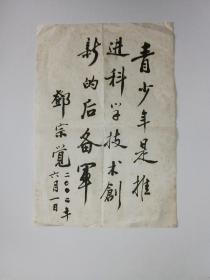 青少年是推
进科学技术創
新的后备軍
鄧宗覺
二〇〇二年
六月一日